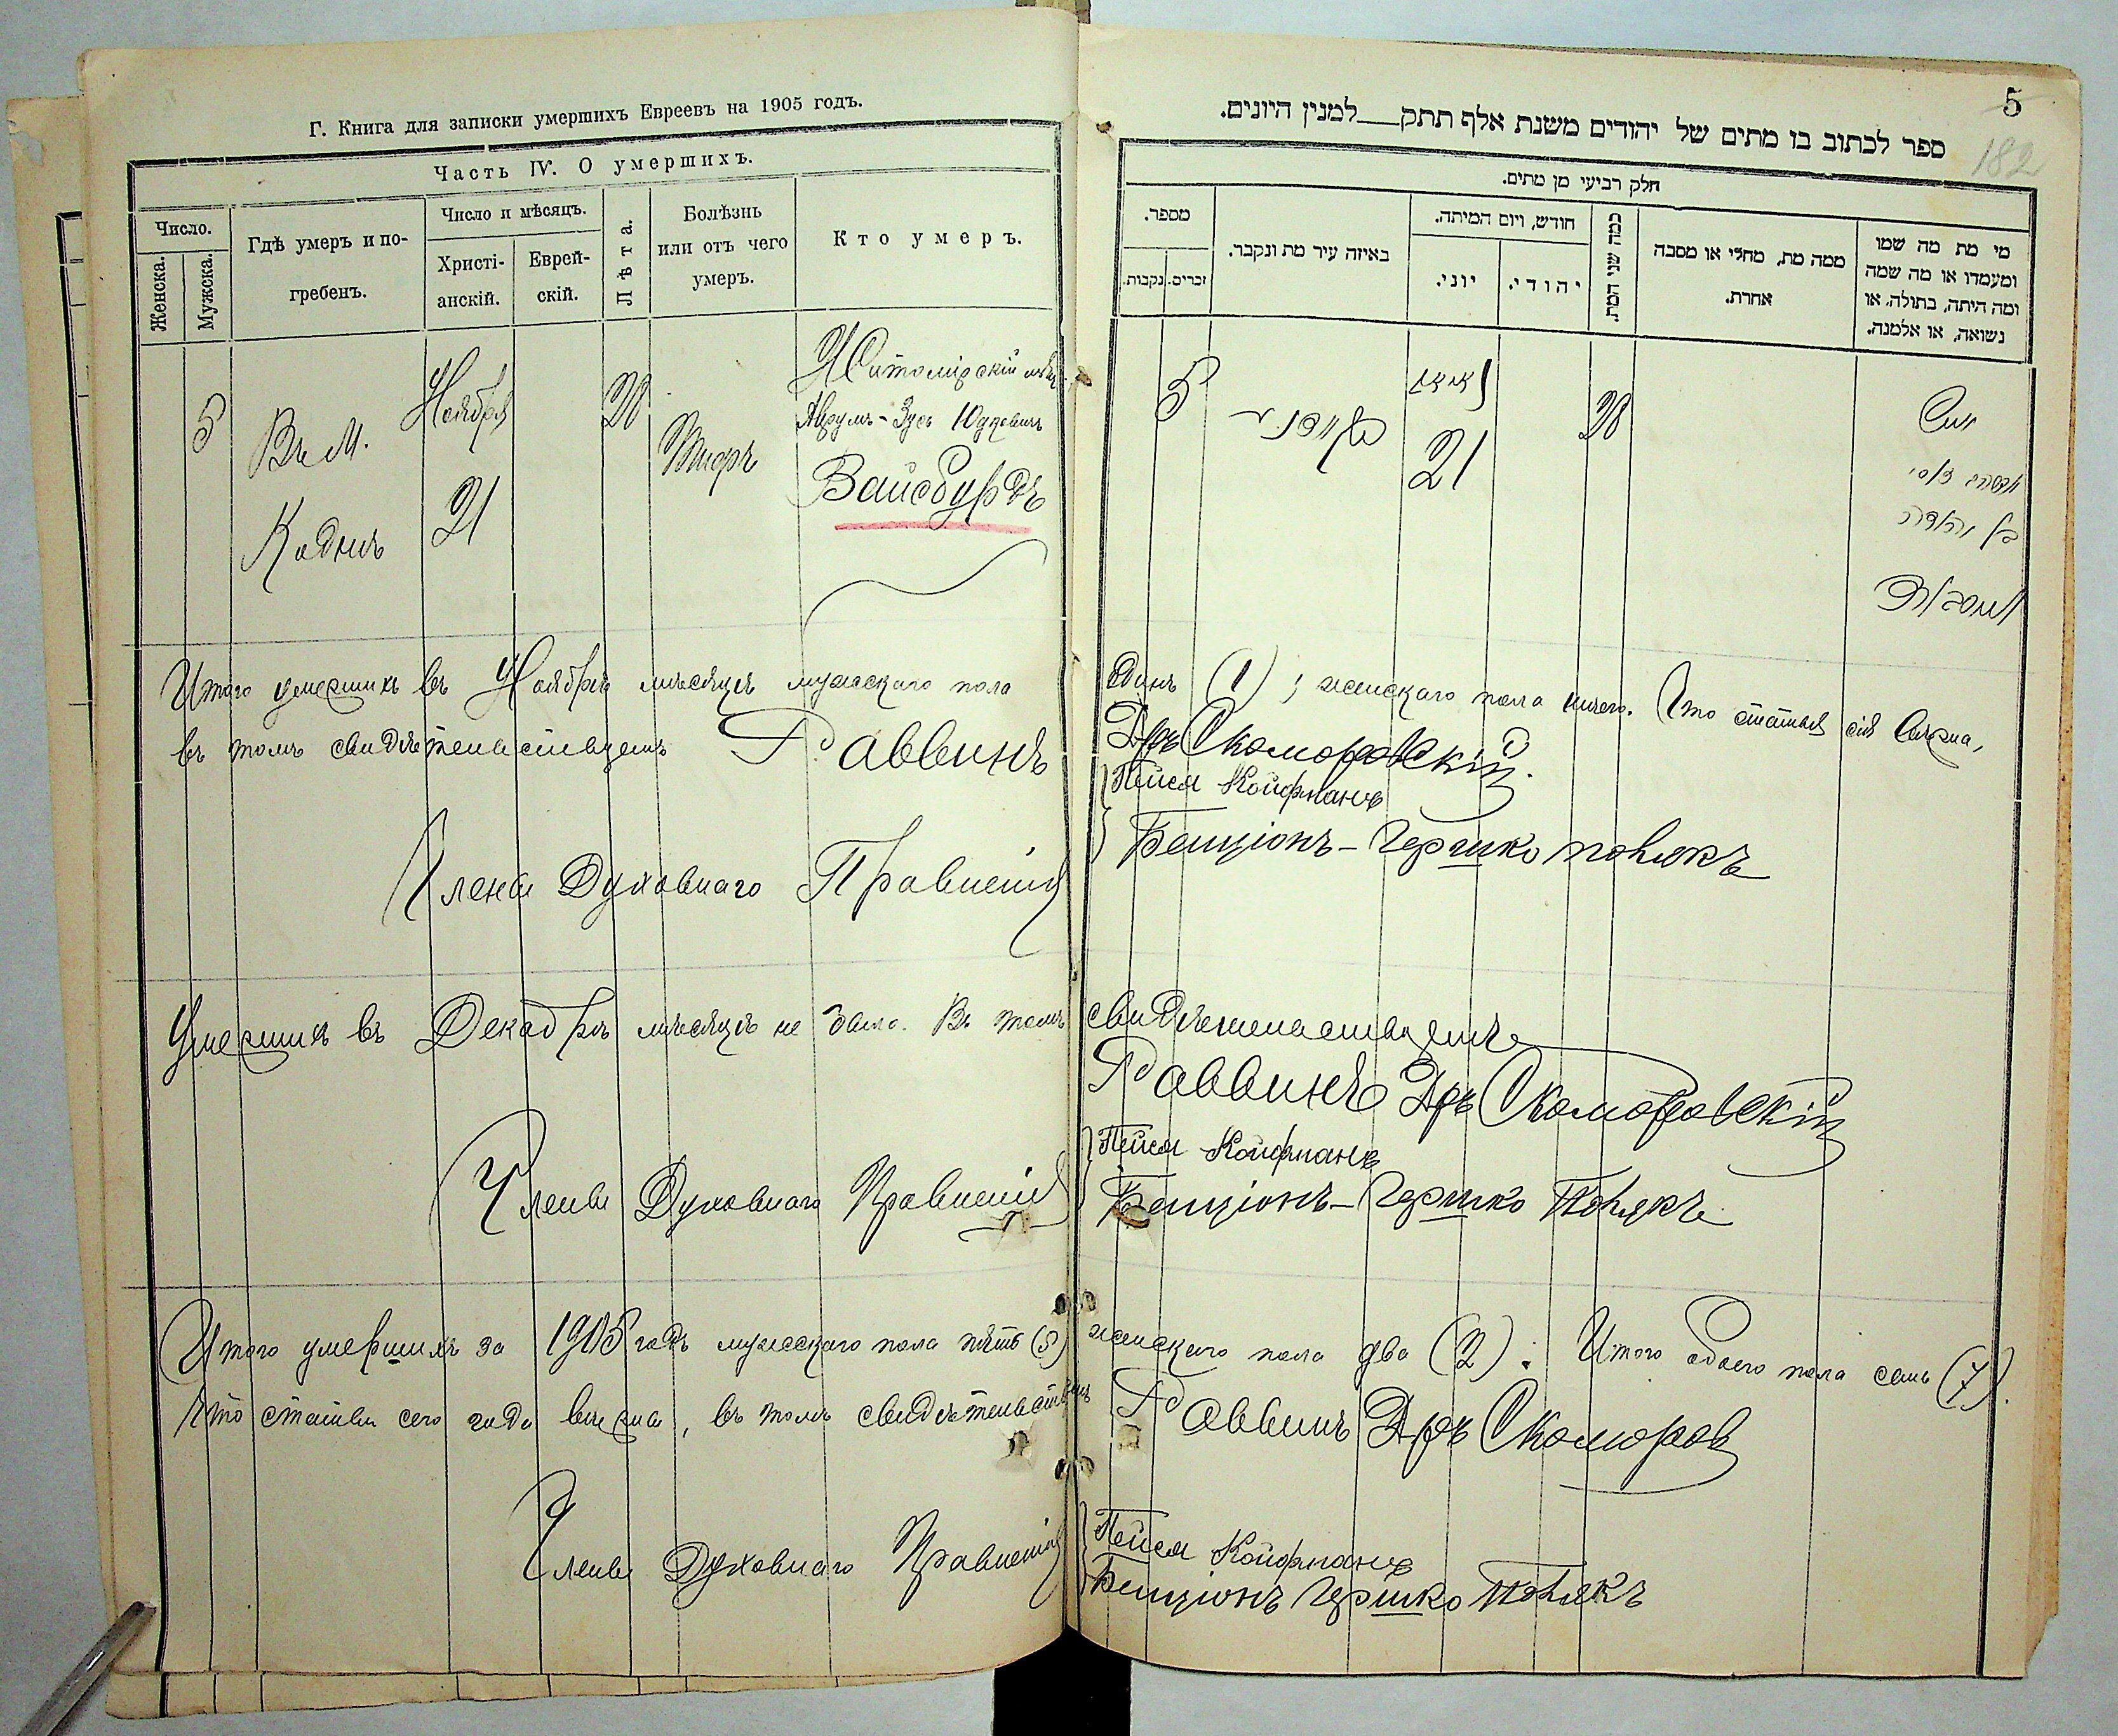 Г. Книга для записки умершихъ Евреевъ на 1905 годъ.
Часть IV. О умершихъ.
Число.
Женска.
Мужска.
Гдѣ умеръ и по-
гребенъ.
Число и мѣсяцъ.
Христі-
анскій.
Еврей-
скій.
Лѣта.
Болѣзнь
или отъ чего
умеръ.
Кто умеръ.
5
Въ М.
Ноября
21
28
Тифъ
Житомірскій мѣщ.
Вайсбурдъ
Итого умершихъ въ Ноябрѣ мѣсяцѣ мужскаго пола
въ томъ свидѣтельствуемъ Раввинъ
Члены Духовнаго Правленія
Умершихъ въ Декабрѣ мѣсяцѣ не было. Въ томъ
Члены Духовнаго Правленія
Итого умершихъ за 1905 годъ мужескаго пола пять (5)
Что статьи сего года вѣрны, въ томъ свидѣтельствуемъ
Члены Духовнаго Правленія
5
182
ספר לכתוב בו מתים של יהודים משנת אלף תתק למנין היונים.
חלק רביעי מן מתים.
מספר.
נקבות.
זכרים.
באיזה עיר מת ונקבר.
חודש, ויום המיתה.
יוני.
יהודי.
כמה שני המת.
ממה מת, מחלי או מסבה
אחרת.
מי מת מה שמו
ומעמדו או מה שמה
ומה היתה, בתולה, או
נשואה, או אלמנה.
5
21
28
одинъ (1); женскаго пола ничего. Что статья сія вѣрна,
Д-ръ Скоморовскій.
Пейся Койфманъ
Бенціонъ-Гершко Полякъ
свидѣтельствуемъ
Раввинъ Д-ръ Скоморовскій
Пейся Койфманъ
Бенціонъ-Гершко Полякъ
женскаго пола два (2). Итого обоего пола семь (7).
Раввинъ Д-ръ Скоморов
Пейся Койфманъ
Бенціонъ Гершко Полякъ